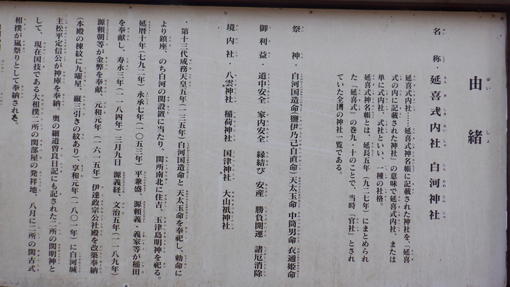 由緒
名称 延喜式内社 白河神社
延喜式内社……延喜式神名帳に記載された神社を、「延喜
式の内に記載された神社」の意味で延喜式内社、または
単に式内社、式社といい、一種の社格。
延喜式神名帳とは、延長五年(九二七年)にまとめられ
た『延喜式』の巻九・十のことで、当時「官社」とされ
ていた全国の神社一覧である。
祭神 白河国造命(鹽伊乃己自直命) 天太玉命 中筒男命 衣通姫命
御利益 道中安全 家内安全 縁結び 安産 勝負開運 諸厄消除
境内社 八雲神社 稲荷神社 国津神社 大山祇神社
第十三代成務天皇五年(一三五年)白河国造命と天太玉命を奉祀し、勅命に
より鎮座。のち白河の関設置に当たり、関所南北に住吉、玉津島明神を祀る。
延暦十年(七九一年)永承七年(一〇五二年)平兼盛、源頼義・義家等が幡田
を奉献し、寿永三年(一一八四年)二月九日 源義経、文治五年(一一八九年)
源頼朝等が金弊を奉献。元和元年(一六一五年)伊達政宗公社殿を改築奉納
(本殿の棟紋に九曜星、縦三引きの紋あり)、享和元年(一八〇一年)に白河城
主松平定信公が神庫を奉納。奥の細道曽良日記にも記された二所の関明神と
して、現在国技である大相撲二所の関部屋の発祥地。八月に二所の関古式
相撲が風祭りとして奉納される。